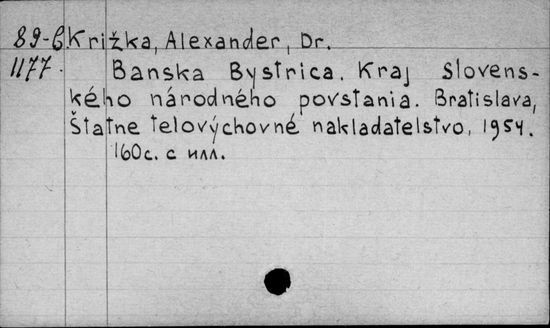 89-6 Križka, Alexander, Dr.
1177. Banska Bystrica. Kraj Slovens-
kého národného povstania. Bratislava,
Štatne telovýchovné nakladatelstvo, 1954.
160c. с илл.